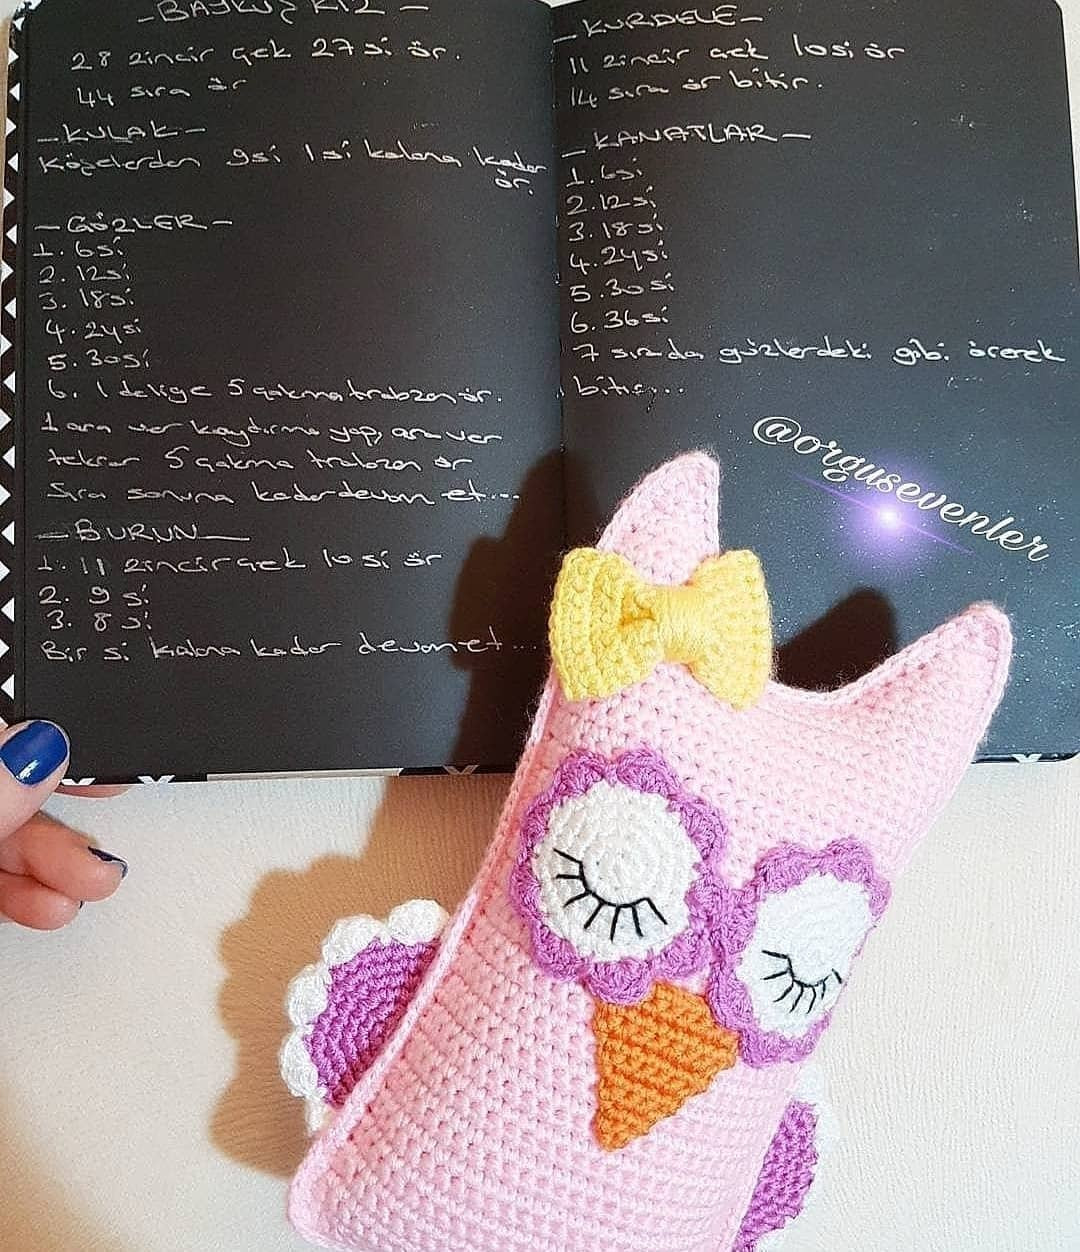 - BAYKUŞ KIZ -
28 zincir çek 27 si ör.
44 sıra ör
- KULAK -
Köşelerden 9si 1 si kalana kadar
ör.
- GÖZLER -
1. 6si
2. 12si
3. 18si
4. 24si
5. 30si
6. 1 deliğe 5 çakma trabzan ör.
1 ara ver kaydırma yap, ara ver
tekrar 5 çakma trabzan ör
Sıra sonuna kadar devam et...
- BURUN -
1. 11 zincir çek 10 si ör
2. 9 si
3. 8 si
Bir si kalana kadar devam et...
- KURDELE -
11 zincir çek 10si ör
14 sıra ör bitir.
- KANATLAR -
1. 6si
2. 12si
3. 18si
4. 24si
5. 30si
6. 36si
7 sırada gözlerdeki gibi örerek
bitiş...
@orgusevenler